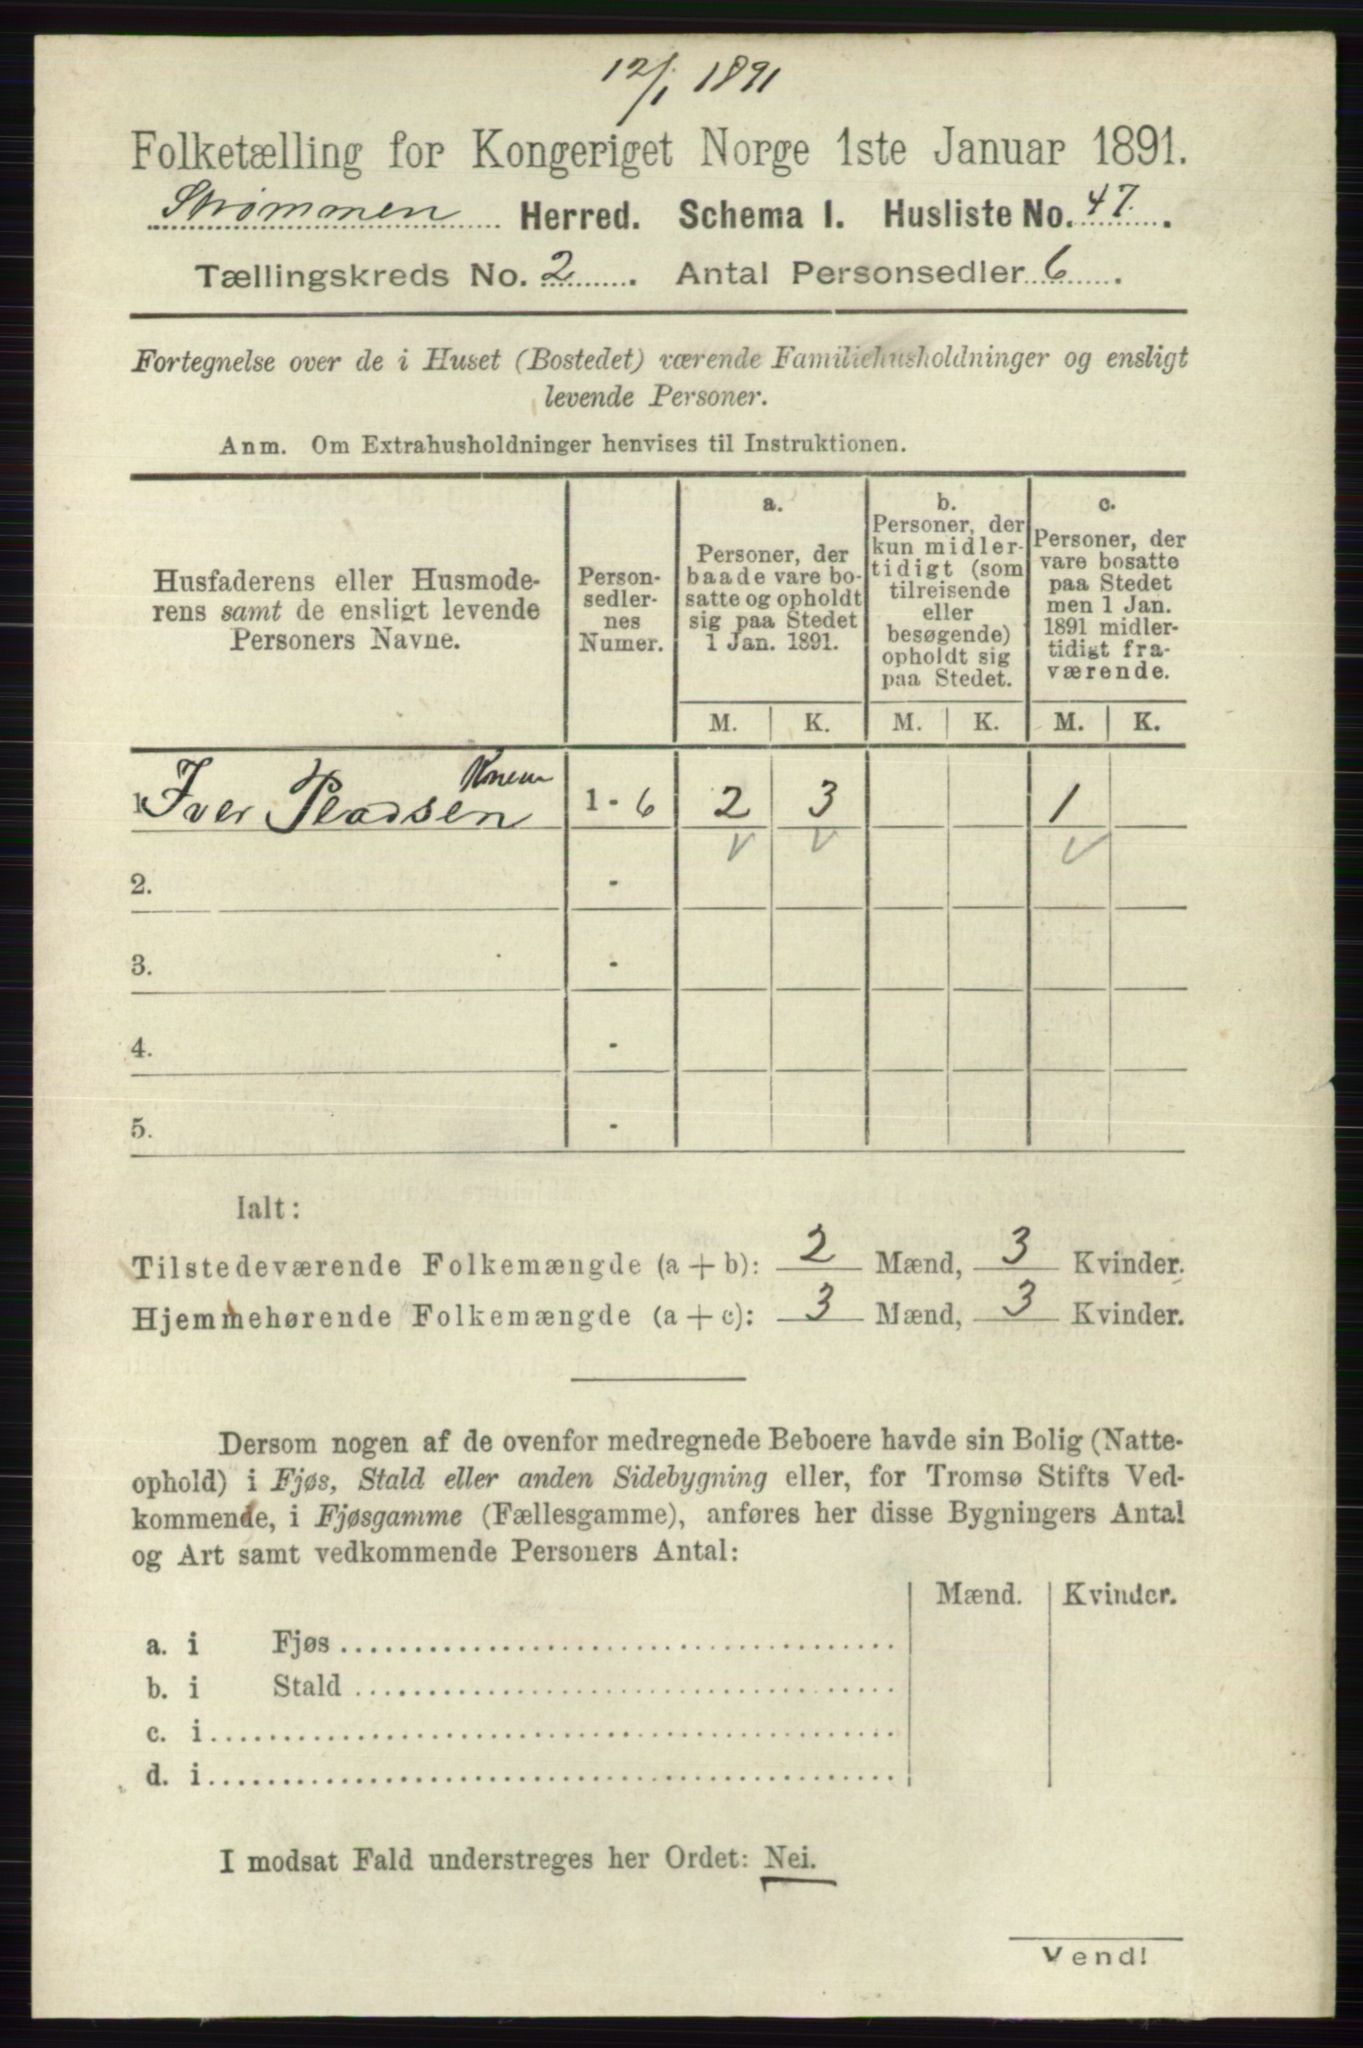 12/1 1891
Folketælling for Kongeriget Norge 1ste Januar 1891.
Strømmen Herred. Schema I. Husliste No. 47.
Tællingskreds No. 2. Antal Personsedler 6.
Fortegnelse over de i Huset (Bostedet) værende Familiehusholdninger og ensligt
levende Personer.
Anm. Om Extrahusholdninger henvises til Instruktionen.
Husfaderens eller Husmode-
rens samt de ensligt levende
Personers Navne.
Person-
sedler-
nes
Numer.
a.
Personer, der
baade vare bo-
satte og opholdt
sig paa Stedet
1 Jan. 1891.
b.
Personer, der
kun midler-
tidigt (som
tilreisende
eller
besøgende)
opholdt sig
paa Stedet.
c.
Personer, der
vare bosatte
paa Stedet
men 1 Jan.
1891 midler-
tidigt fra-
værende.
M. K. M. K. M. K.
1. Iver 1 - 6 2 3 1
2. -
3. -
4. -
5. -
Ialt:
Tilstedeværende Folkemængde (a + b): 2 Mænd, 3 Kvinder.
Hjemmehørende Folkemængde (a + c): 3 Mænd, 3 Kvinder.
Dersom nogen af de ovenfor medregnede Beboere havde sin Bolig (Natte-
ophold) i Fjøs, Stald eller anden Sidebygning eller, for Tromsø Stifts Ved-
kommende, i Fjøsgamme (Fællesgamme), anføres her disse Bygningers Antal
og Art samt vedkommende Personers Antal:
Mænd. Kvinder.
a. i Fjøs
b. i Stald
c. i
d. i
I modsat Fald understreges her Ordet: Nei.
Vend!